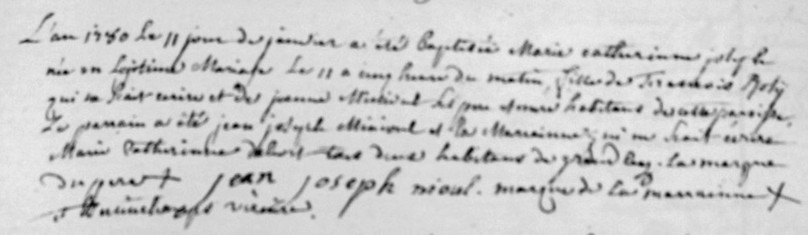 L'an 1780 Le 11 jour de janvier a été Baptisée Marie catherinne joly le
née en Legitime Mariage Le 11 a cinq heure du matin, fille de francois Joly
qui ne scait ecrire et de jeanne Les pere et mere habitans de cette paroisse.
Le parrain a été jean joseph et la Marrainne qui ne scait ecrire
Marie Catherinne tous deux habitans de La marque
du pere + jean joseph nioul. marque de La marrainne +
vicaire.